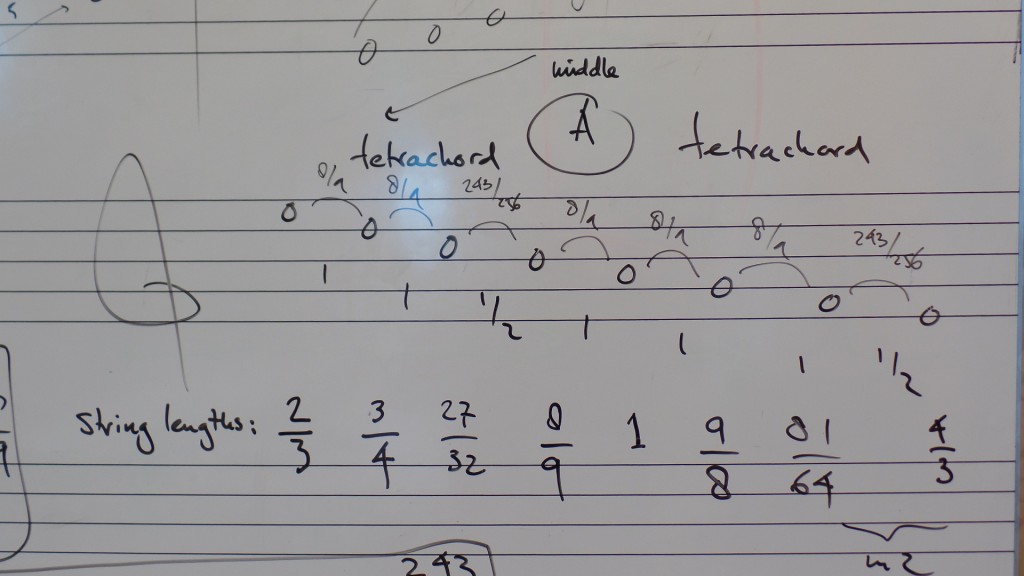 middle
tetrachord A tetrachord
8/9 8/9 243/256 8/9 8/9 8/9 243/256
1 1 1/2 1 1 1 1/2
String lengths: 2/3 3/4 27/32 8/9 1 9/8 81/64 4/3
m2
243